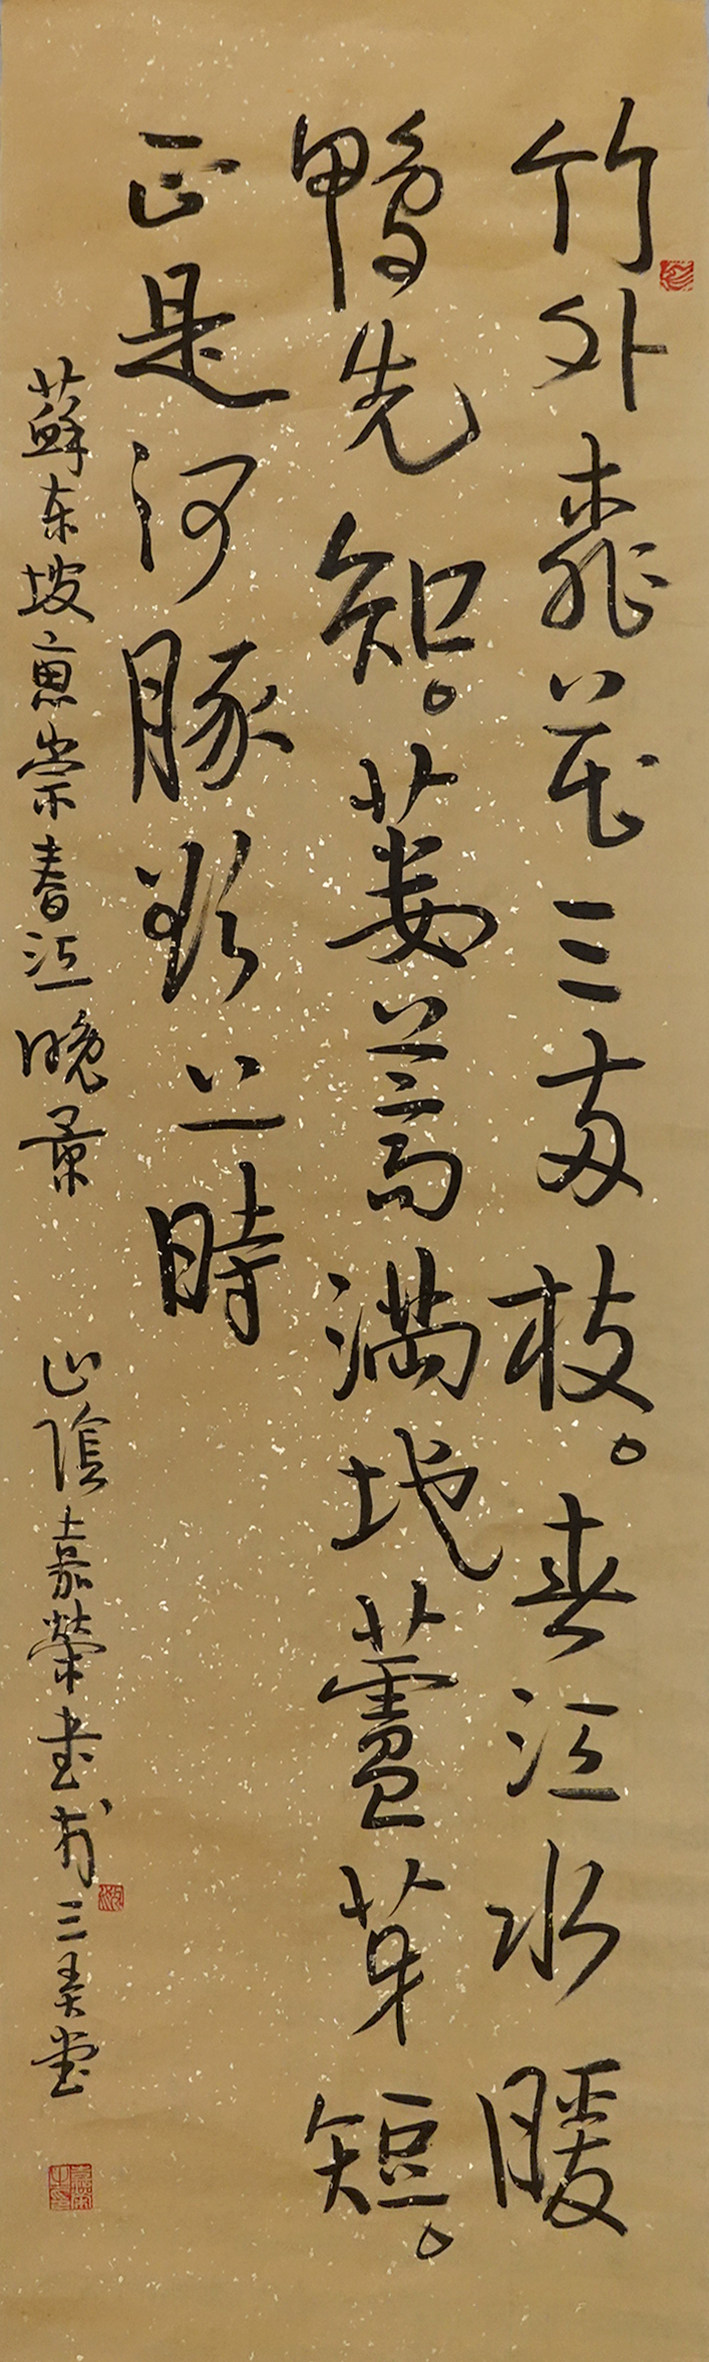 竹外桃花三両枝。春江水暖
鴨先知。蒌蒿满地蘆芽短。
正是河豚欲上時
蘇东坡惠崇春江晚景
山陰嘉榮書於三美堂